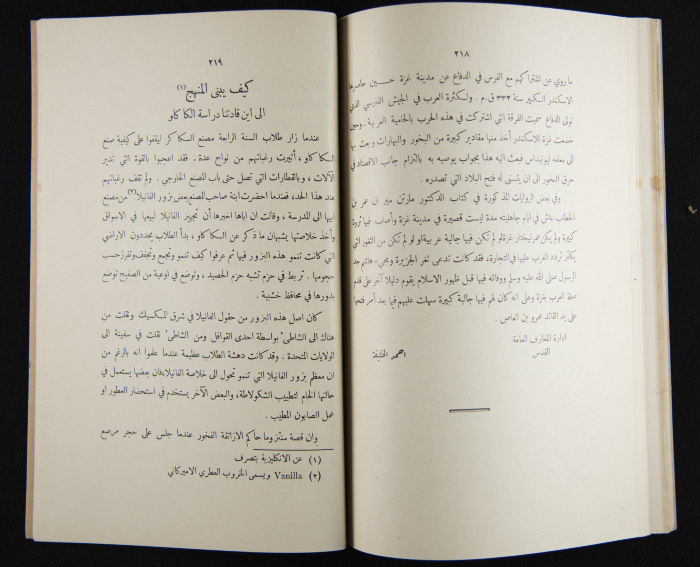 ٢١٨
ما روي عن اشتراكهم مع الفرس في الدفاع عن مدينة غزة حين حاصرها
الاسكندر الكبير سنة ٣٣٢ ق.م. ولكثرة العرب في الجيش الفارسي الذي
تولى الدفاع سميت الفرقة التي اشتركت في هذه الحرب بالحامية العربية. وحين
خضعت غزة للاسكندر أخذ منها مقادير كبيرة من البخور والبهارات وبعث بها
الى معلمه ليونيداس فبعث اليه هذا بجواب يوصيه به بالتزام جانب الاقتصاد في
حرق البخور الى ان يتسنى له فتح البلاد التي تصدره.
وفي بعض الروايات المذكورة في كتاب الدكتور مارتن مير ان عمر بن
الخطاب عاش في ايام جاهليته مدة ليست قصيرة في مدينة غزة وأصاب فيها ثروة
كبيرة ولم يكن عمر ليختار غزة لو لم تكن فيها جالية عربية او لو لم تكن من الثغور التي
يكثر تردد العرب عليها في التجارة، فقد كانت تدعى ثغر الجزيرة ومجيء هاشم جد
الرسول صلى الله عليه وسلم ووفاته فيها قبل ظهور الاسلام يقوم دليلا آخر على قدم
صلة العرب بغزة وعلى انه كان لهم فيها جالية كبيرة سهلت عليهم فيما بعد أمر فتحها
على يد القائد عمرو بن العاص.
ادارة المعارف العامة
القدس
احمد خليفة
٢١٩
كيف يبنى المنهج (١)
الى اين قادتنا دراسة الكاكاو
عندما زار طلاب السنة الرابعة مصنع السكاكر ليقفوا على كيفية صنع
الكاكاو، أثيرت رغباتهم من نواح عدة. فقد اعجبوا بالقوة التي تدير
الآلات، وبالقطارات التي تصل حتى باب المصنع الخارجي. ولم تقف رغباتهم
عند هذا الحد، فعندما احضرت ابنة صاحب المصنع بعض بزور الفانيلا (٢) من مصنع
ابيها الى المدرسة، وقالت ان اباها اخبرها أن تجهيز الفانيلا لبيعها في الاسواق
وأخذ خلاصتها يشبهان ما ذكر عن الكاكاو، بدأ الطلاب يحددون الاراضي
التي كانت تنمو هذه البزور فيها ثم عرفوا كيف تنمو وتجمع وتجفف وتفرز حسب
حجومها. تربط في حزم تشبه حزم الحصيد، وتوضع في اوعية من الصفيح توضع
بدورها في محافظ خشبية.
كان اصل هذه البزور من حقول الفانيلا في شرق المكسيك ونقلت من
هناك الى الشاطىء بواسطة احدى القوافل ومن الشاطىء نقلت في سفينة الى
الولايات المتحدة. وقد كانت دهشة الطلاب عظيمة عندما علموا انه بالرغم من
ان معظم بزور الفانيلا التي تنمو تحول الى خلاصة الفانيلا، فان بعضها يستعمل في
حالتها الخام لتطييب الشكولاطة، والبعض الآخر يستخدم في استحضار العطور او
عمل الصابون المطيب.
وان قصة منتزوما حاكم الازاتقة الفخور عندما جلس على حجر مرصع
(١) عن الانكليزية بتصرف
(٢) Vanilla ويسمى الخروب العطري الاميركاني